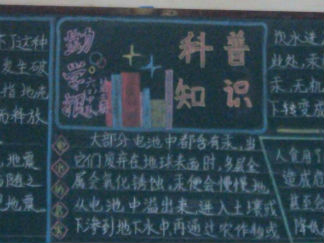 不了这种
发生破
指地壳
而释放
地震
与随之
地震
勤学报
科普
知识
大部分电池中都含有汞,当
它们废弃在地球表面时,外层金
属会氧化锈蚀,汞便会慢慢地
从电池中溢出来,进入土壤或
下渗到地下水中再通过农作物或
饮水进入
此处,汞
汞,无机
下转变成
人食用了
造成危
甚至
降低